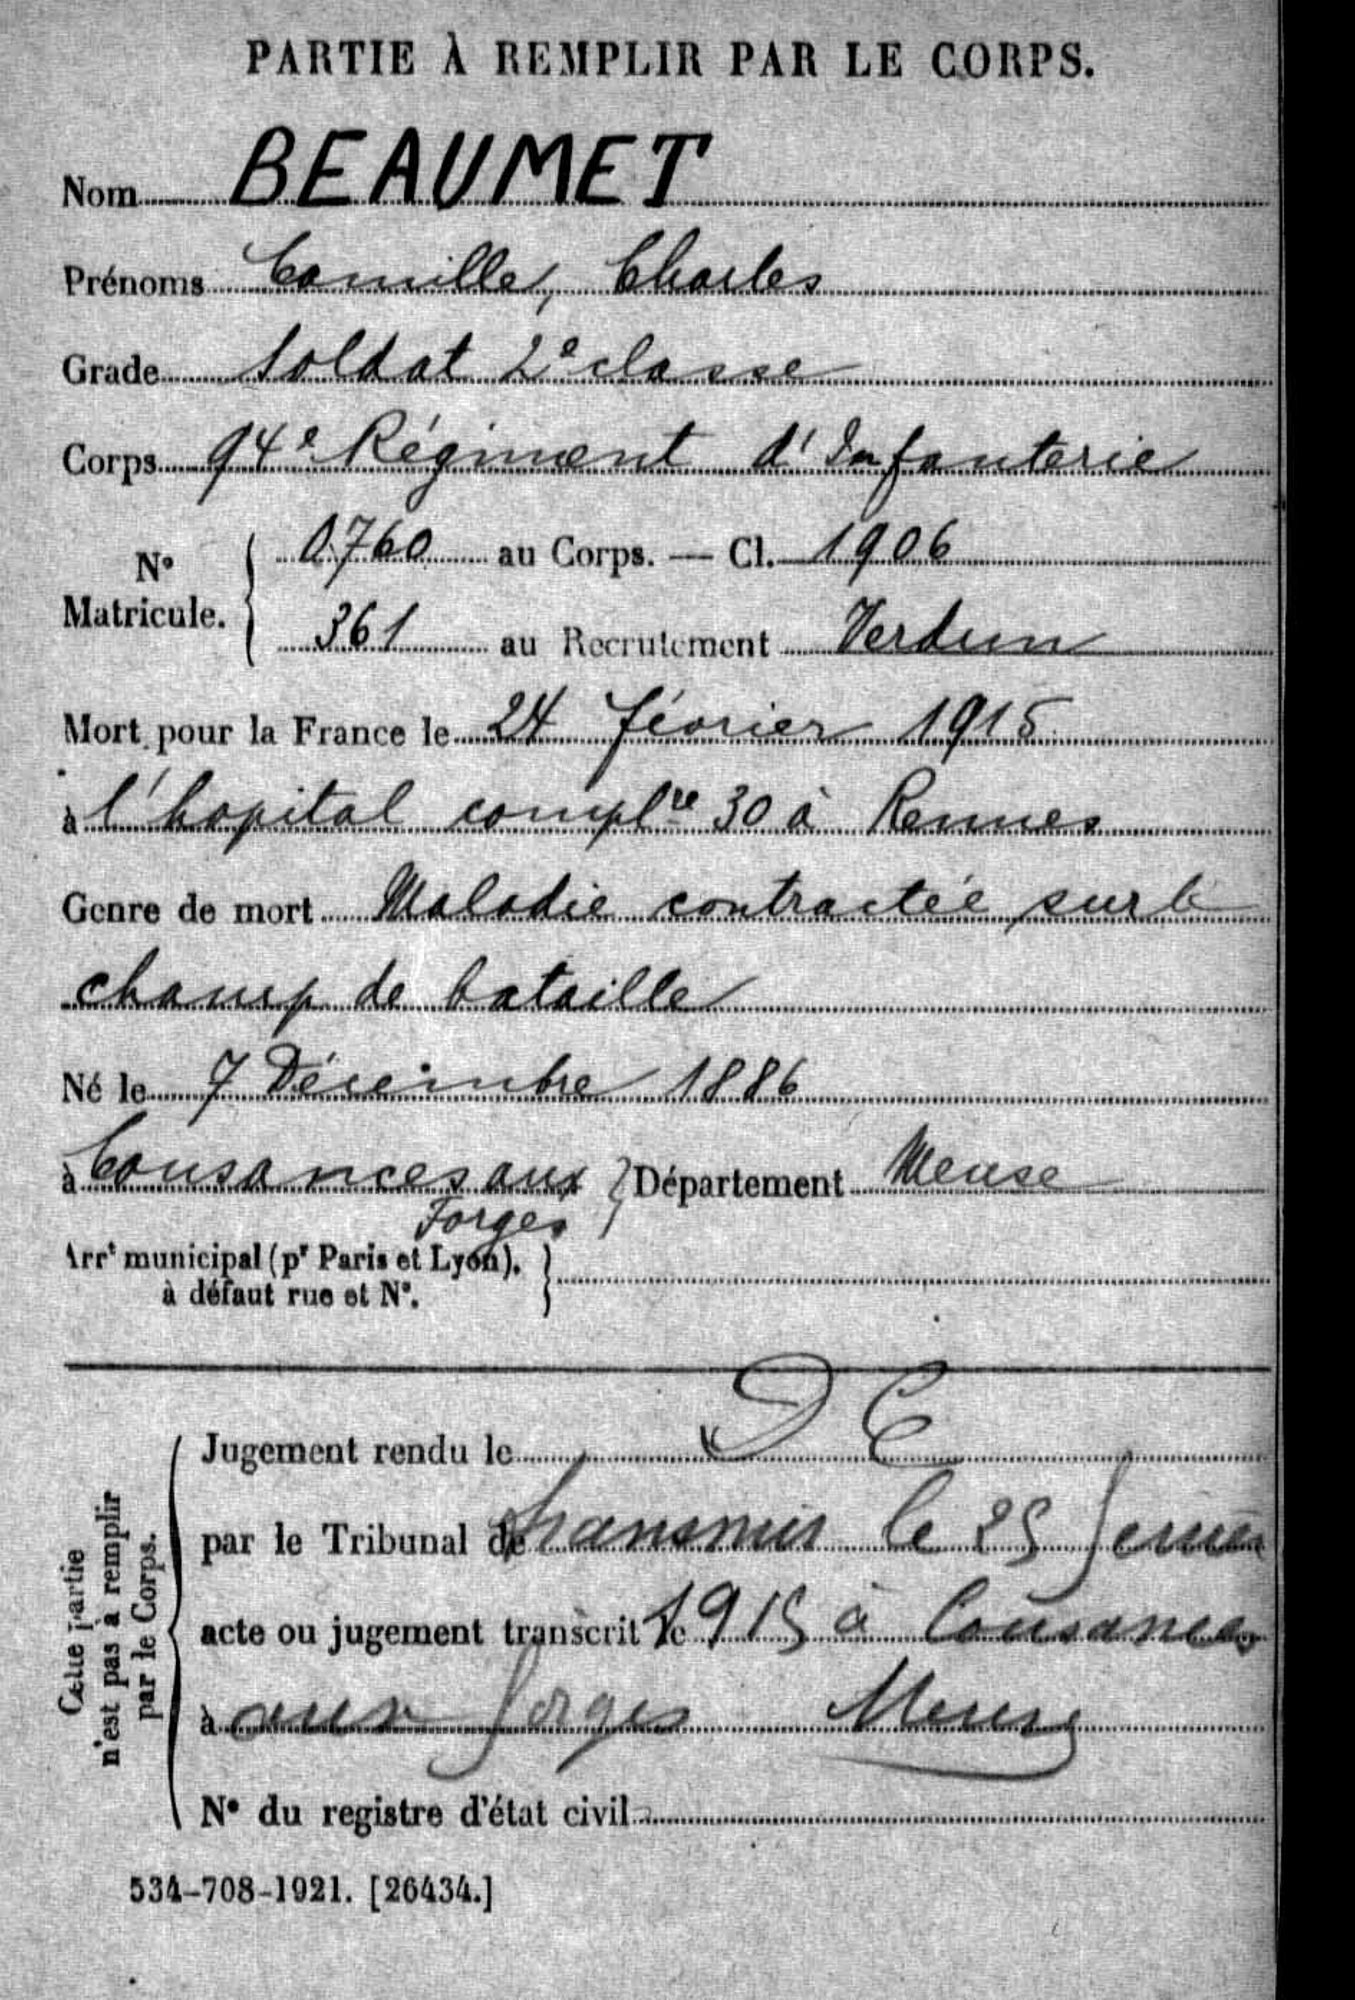 PARTIE À REMPLIR PAR LE CORPS.
Nom BEAUMET
Prénoms Camille, Charles
Grade Soldat 2e classe
Corps 94e Régiment d'Infanterie
No Matricule. 0760 au Corps. — Cl. 1906
361 au Recrutement Verdun
Mort pour la France le 24 février 1915
à l'hopital complre 30 à Rennes
Genre de mort Maladie contractée sur le
champ de bataille
Né le 7 Décembre 1886
à Cousances aux Forges Département Meuse
Arrt municipal (pr Paris et Lyon),
à défaut rue et No.
DC
Cette partie
n'est pas à remplir
par le Corps.
Jugement rendu le
par le Tribunal de transmis le 25 fevrier
acte ou jugement transcrit le 1915 à Cousances
à aux forges Meuse
No du registre d'état civil
534-708-1921. [26434.]